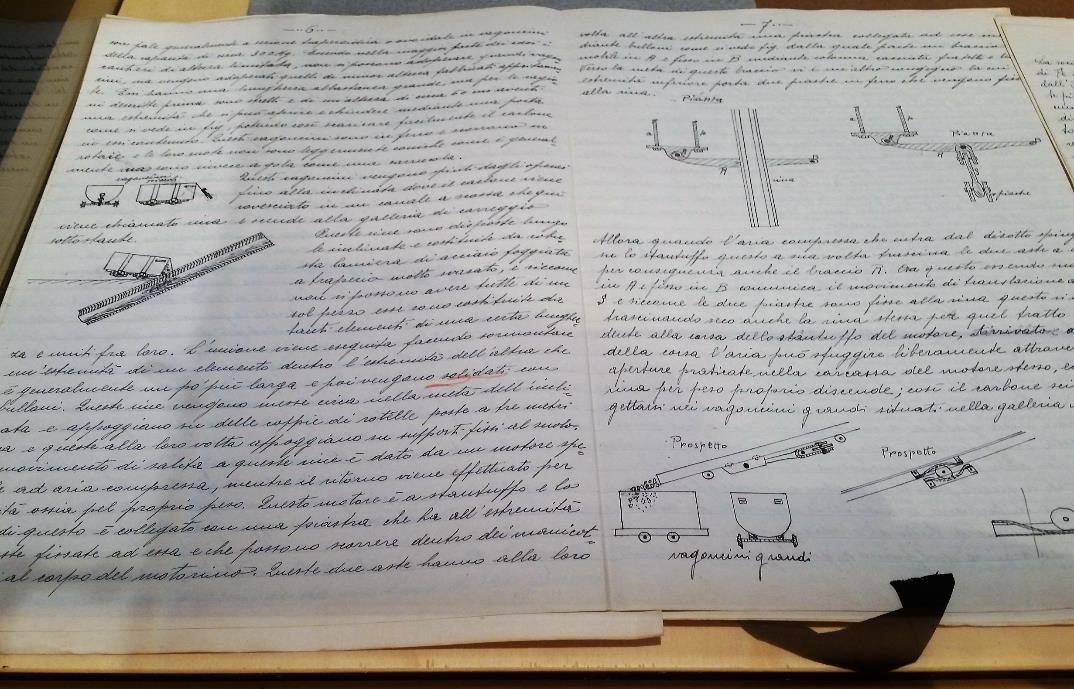 —6—
son fate generalmente a sezione trapezoidale o ovoidale in vagoncini
della capacità di circa 300 Kg. Essendo nella maggior parte dei casi i
cantieri di altezza limitata, non si possono adoperare grandi vagon-
cini, ma vengono adoperati quelli di minor altezza fabbricati
le. Essi hanno una lunghezza abbastanza grande, ma per le
ni descritte prima sono stretti e di un'altezza di circa 60 cm aventi
una estremità che si può aprire e chiudere mediante una porta
come si vede in fig. potendo così scaricare facilmente il carbone
in essi contenuto. Questi vagoncini sono in ferro e scorrono su
rotaie, e le loro ruote non sono leggermente coniche come è general
mente ma sono invece a gola come una carrucola.
vagoncini
Questi vagoncini vengono spinti dagli operai
fino alla inclinata dove il carbone viene
rovesciato in un canale a scossa che qui
viene chiamato rina e scende alla galleria di carreggio
sottostante.
Queste rine sono disposte lungo
le inclinate e costituite da robu-
sta lamiera di acciaio foggiata
a trapezio molto svasato, e siccome
non si possono avere tutte di un
sol pezzo esse sono costituite da
tanti elementi di una certa lunghez-
za e uniti fra loro. L'unione viene eseguita facendo sormontare
un'estremità di un elemento dentro l'estremità dell'altra che
è generalmente un po' più larga e poi vengono solidati con
bulloni. Queste rine vengono messe circa nella metà dell'incli-
ata e appoggiano su delle coppie di rotelle poste a tre metri
a e queste alla loro volta appoggiano su supporti fissi al suolo.
movimento di salita a queste rine è dato da un motore spe-
e ad aria compressa, mentre il ritorno viene effettuato per
tà ossia pel proprio peso. Questo motore è a stantuffo e lo
di questo è collegato con una piastra che ha all'estremità
ste fissate ad essa e che possono scorrere dentro dei manicot-
al corpo del motorino. Queste due aste hanno alla loro
—7—
volta all'altra estremità una piastra collegata ad esse me
diante bulloni come si vede fig. dalla quale parte un braccio
mobile in A e fisso in B mediante colonna
Verso la metà di questo braccio vi è un altro congegno che
estremità superiore porta due piastre in ferro che vengono fiss
alla rina.
Pianta
A
rina
Pianta
piastre
Allora quando l'aria compressa che entra dal disotto sping
ne lo stantuffo questo a sua volta trascina le due aste a
per conseguenza anche il braccio A. Ora questo essendo mo
in A e fisso in B comunica il movimento di translazione a
S e siccome le due piastre sono fisse alla rina questo si
trascinando seco anche la rina stessa per quel tratto
dente alla corsa dello stantuffo del motore. Arrivato a
della corsa l'aria può sfuggire liberamente attraver
aperture praticate nella carcassa del motore stesso, e
rina per peso proprio discende; così il carbone sci
gettarsi nei vagoncini grandi situati nella galleria
Prospetto
Prospetto
vagoncini grandi